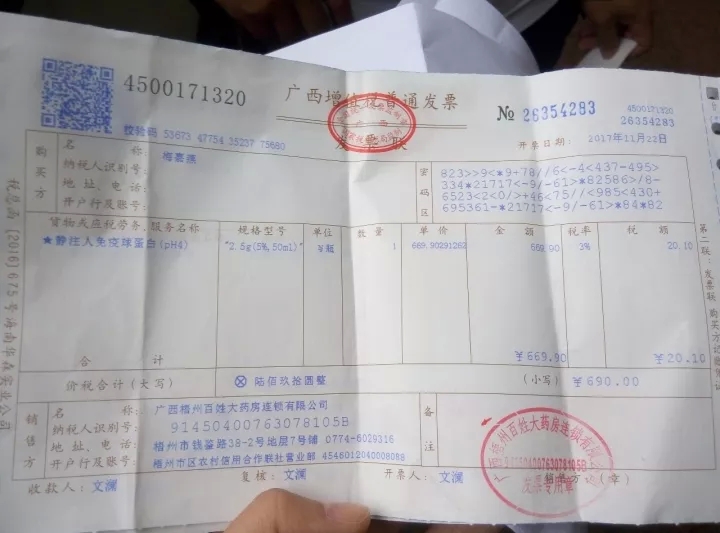 4500171320
广西增值税普通发票
发票联
№ 26354283
4500171320
26354283
校验码 53673 47754 35237 75680
开票日期： 2017年11月22日
购买方
名 称： 梅嘉燕
纳税人识别号：
地址、电话：
开户行及账号：
密码区
823>>9<*9+78//6<-4<437-495>
334*21717<-9/-61>*82586>/8-
6523<2<0/>+46<75//<985<430+
695361-*21717<-9/-61>*84*82
货物或应税劳务、服务名称 规格型号 单位 数量 单价 金额 税率 税额
★静注人免疫球蛋白(pH4) "2.5g(5%,50ml)" ¥瓶 1 669.90291262 669.90 3% 20.10
合计 ¥669.90 ¥20.10
价税合计（大写） ⊗ 陆佰玖拾圆整 （小写） ¥690.00
销售方
名 称： 广西梧州百姓大药房连锁有限公司
纳税人识别号： 91450400763078105B
地址、电话： 梧州市钱鉴路38-2号地层7号铺 0774-6029316
开户行及账号： 梧州市区农村信用合作联社营业部 454601204000808​8
备注
收款人： 文澜 复核： 文澜 开票人： 文澜 销售方：（章）
广西梧州百姓大药房连锁有限公司
91450400763078105B
发票专用章
税总函[2016]675号海南华森实业公司
第二联：发票联 购买方记账凭证